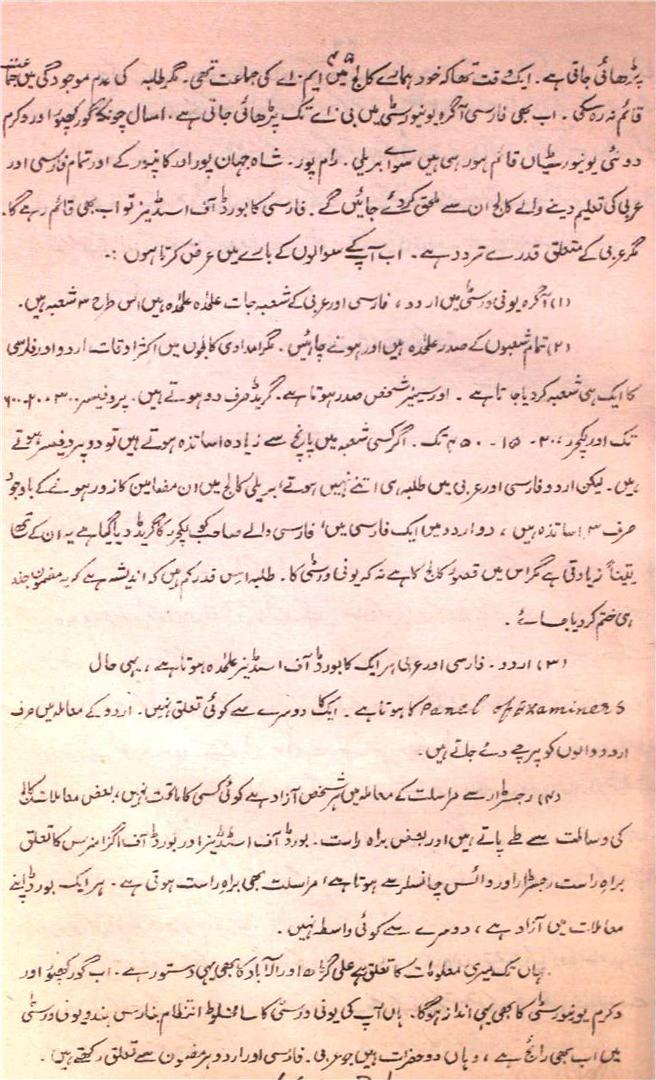 ۴۵
پڑھائی جاتی ہے۔ ایک وقت تھا کہ خود ہمارے کالج میں ایم۔ اے کی جماعت تھی۔ مگر طلبہ کی عدم موجودگی میں جماعت
قائم نہ رہ سکی۔ اب بھی فارسی آگرہ یونیورسٹی میں بی اے تک پڑھائی جاتی ہے۔ امسال چونکہ گورکھپور اور وکرم
دو نئی یونیورسٹیاں قائم ہو رہی ہیں سوائے بریلی۔ رام پور۔ شاہ جہان پور اور کانپور کے اور تمام فارسی اور
عربی کی تعلیم دینے والے کالج ان سے ملحق کر دئے جائیں گے۔ فارسی کا بورڈ آف اسٹڈیز تو اب بھی قائم رہے گا۔
مگر عربی کے متعلق قدرے تردد ہے۔ اب آپ کے سوالوں کے بارے میں عرض کرتا ہوں :۔
(۱) آگرہ یونی ورسٹی میں اردو، فارسی اور عربی کے شعبہ جات علٰحدہ علٰحدہ ہیں اس طرح ۳ شعبہ ہیں۔
(۲) تمام شعبوں کے صدر علٰحدہ ہیں اور ہونے چاہئیں۔ مگر امدادی کالجوں میں اکثر اوقات اردو اور فارسی
کا ایک ہی شعبہ کر دیا جاتا ہے۔ اور سینیر شخص صدر ہوتا ہے۔ گریڈ صرف دو ہوتے ہیں۔ پروفیسر ۳۰۰۔۲۰۔۶۰۰
تک اور لیکچرر ۲۰۰۔ ۱۵۔ ۴۵۰ تک۔ اگر کسی شعبہ میں پانچ سے زیادہ اساتذہ ہوتے ہیں تو دو پروفیسر ہوتے
ہیں۔ لیکن اردو فارسی اور عربی میں طلبہ ہی اتنے نہیں ہوتے، بریلی کالج میں ان مضامین کا زور ہونے کے باوجود
صرف ۳ اساتذہ ہیں، دو اردو میں ایک فارسی میں، فارسی والے صاحب کو لیکچرر کا گریڈ دیا گیا ہے یہ ان کے ساتھ
یقیناً زیادتی ہے مگر اس میں قصور کالج کا ہے نہ کہ یونی ورسٹی کا۔ طلبہ اس قدر کم ہیں کہ اندیشہ ہے کہ یہ مضمون جلد
ہی ختم کر دیا جائے۔
(۳) اردو۔ فارسی اور عربی ہر ایک کا بورڈ آف اسٹڈیز علٰحدہ ہوتا ہے، یہی حال
Panel of Examiners کا ہوتا ہے۔ ایک کا دوسرے سے کوئی تعلق نہیں۔ اردو کے معاملہ میں صرف
اردو والوں کو پرچے دئے جاتے ہیں۔
(۴) رجسٹرار سے مراسلت کے معاملہ میں ہر شخص آزاد ہے کوئی کسی کا ماتحت نہیں، بعض معاملات کالج
کی وساطت سے طے پاتے ہیں اور بعض براہ راست۔ بورڈ آف اسٹڈیز اور بورڈ آف اگزامنرس کا تعلق
براہ راست رجسٹرار اور وائس چانسلر سے ہوتا ہے، مراسلت بھی براہ راست ہوتی ہے۔ ہر ایک بورڈ اپنے
معاملات میں آزاد ہے، دوسرے سے کوئی واسطہ نہیں۔
جہاں تک میری معلومات کا تعلق ہے علی گڑھ اور الہ آباد کا بھی یہی دستور ہے۔ اب گورکھپور اور
وکرم یونیورسٹی کا بھی یہی انداز ہوگا۔ ہاں آپ کی یونی ورسٹی کا سا مخلوط انتظام بنارس ہندو یونی ورسٹی
میں اب بھی رائج ہے، وہاں دو حضرات ہیں جو عربی۔ فارسی اور اردو ہر مضمون سے تعلق رکھتے ہیں۔